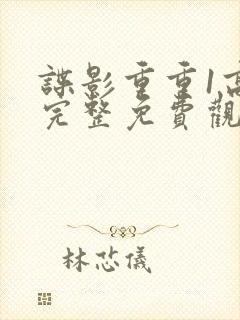 諜影重重1高
完整免費觀
林芯儀